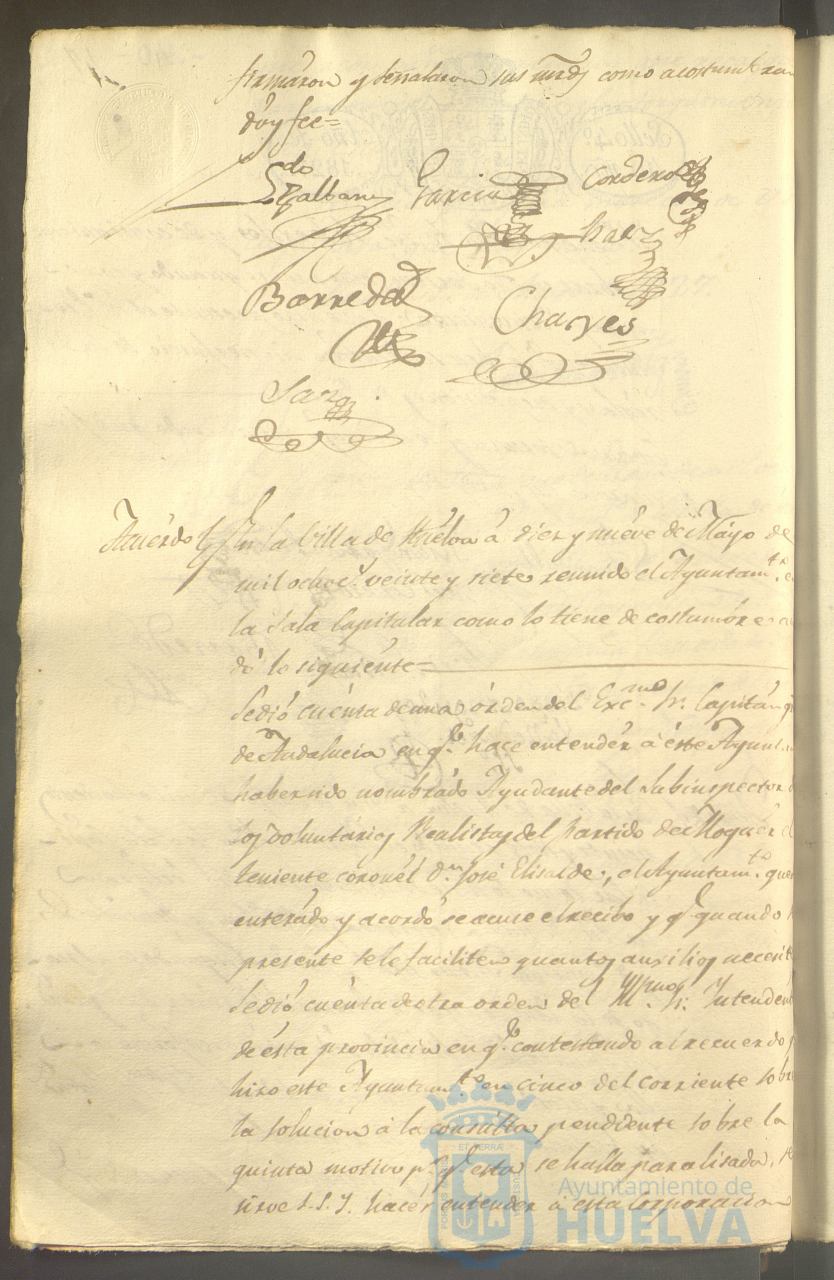 firmaron y señalaron sus mrds como acostumbran
doy fee=
Ldo
Garcia
Cordero
Barreda
Charves
Acuerdo
En la Villa de Huelva á diez y nueve de Mayo de
mil ochocs. veinte y siete reunido el Ayuntamto. e
la Sala Capitular como lo tiene de costumbre a
dó lo siguiente=
Se dió cuenta de una órden del Excmo. Sr. Capitán g
de Andalucia en qe. hace entender á éste Ayunt
haber sido nombrado Ayudante del Subinspector
los Voluntarios Realistas del Partido de Moguer el
teniente coronél Dn. José Elisalde, el Ayuntamto. que
enterado y acordó se acuse el recibo y qe. quando
presente se le faciliten quantos auxilios necesit
Se dió cuenta de otra orden del Sr. Intendent
de ésta provincia en qe. contestando al recuerdo q
hizo este Ayuntamto. en cinco del corriente sobre
la solucion á la consulta pendiente sobre la
quinta motivo pr. qe. esta se halla paralisada, s
sirve S.S.Y. hacer entender á esta Corporacion
Ayuntamiento de
HUELVA